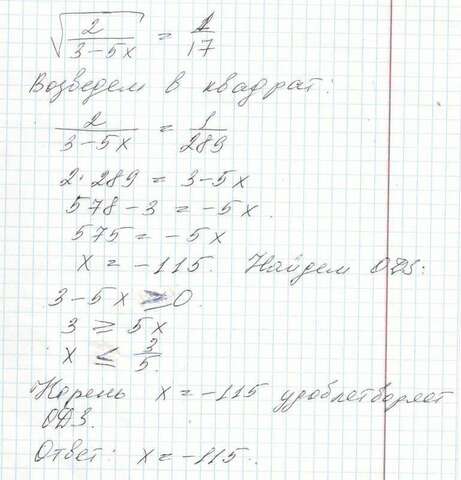 √(2/(3-5x)) = 1/17
Возведем в квадрат:
2/(3-5x) = 1/289
2·289 = 3-5x
578-3 = -5x.
575 = -5x
x = -115. Найдем ОДЗ:
3-5x ≥ 0.
3 ≥ 5x
x ≤ 3/5.
Корень x = -115 удовлетворяет
ОДЗ.
Ответ: x = -115.